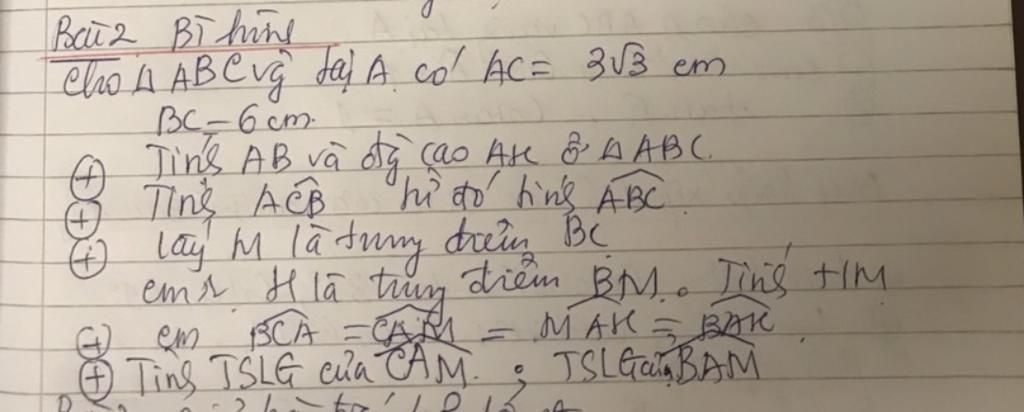 Bài 2 Bì hùng
Cho Δ ABC vg tại A có AC = 3√3 cm
BC = 6 cm.
⊕ Tính AB và đg cao AH ở Δ ABC.
⊕ Tính ACB từ đó tính ABC
⊕ lấy M là trung điểm BC
cm H là trung điểm BM. Tính HM
⊕ cm BCA = CAM = MAH = BAH
⊕ Tính TSLG của CAM. ; TSLG của BAM